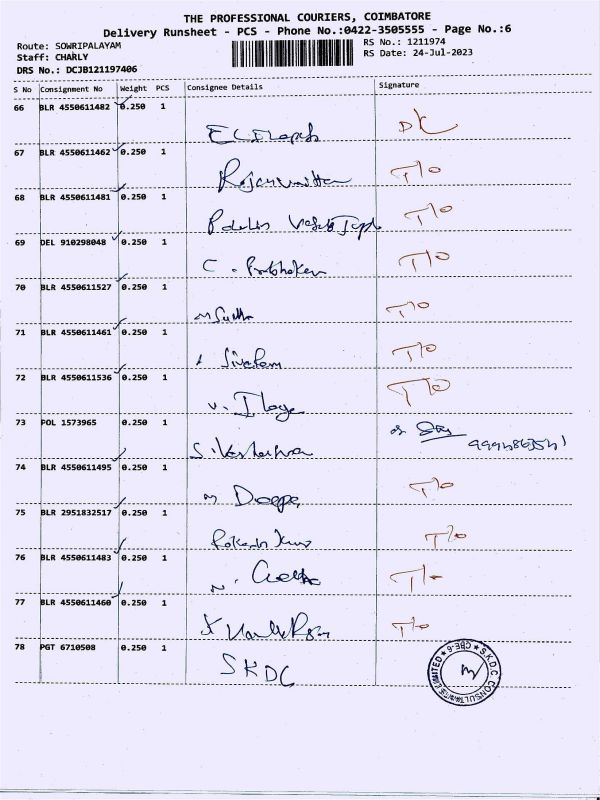 THE PROFESSIONAL COURIERS, COIMBATORE
Delivery Runsheet - PCS - Phone No.:0422-3505555 - Page No.:6
Route: SOWRIPALAYAM
RS No.: 1211974
Staff: CHARLY
RS Date: 24-Jul-2023
DRS No.: DCJB121197406
S No Consignment No Weight PCS Consignee Details Signature
66 BLR 4550611482 0.250 1
67 BLR 4550611462 0.250 1
T/o
68 BLR 4550611481 0.250 1
T/o
69 DEL 910298048 0.250 1
C. Prabhakar T/o
70 BLR 4550611527 0.250 1
M Sudha T/o
71 BLR 4550611461 0.250 1
Sivaram T/o
72 BLR 4550611536 0.250 1
V. T/o
73 POL 1573965 0.250 1
S.
74 BLR 4550611495 0.250 1
M Deepa T/o
75 BLR 2951832517 0.250 1
T/o
76 BLR 4550611483 0.250 1
T/o
77 BLR 4550611460 0.250 1
T/o
78 PGT 6710508 0.250 1
SKDC
S.K.D.C. CONSULTANTS LIMITED * CBE-6 *